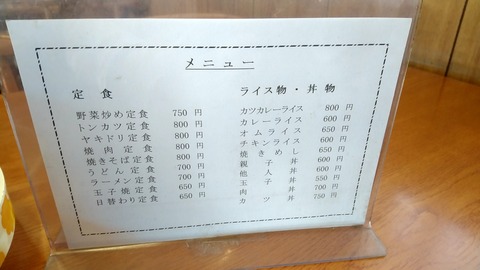 メニュー
定食
野菜炒め定食 750円
トンカツ定食 800円
ヤキドリ定食 800円
焼肉定食 800円
焼きそば定食 800円
うどん定食 700円
ラーメン定食 700円
玉子焼定食 650円
日替わり定食 650円
ライス物・丼物
カツカレーライス 800円
カレーライス 600円
オムライス 650円
チキンライス 600円
焼きめし 650円
親子丼 600円
他人丼 600円
玉子丼 550円
肉丼 700円
カツ丼 750円